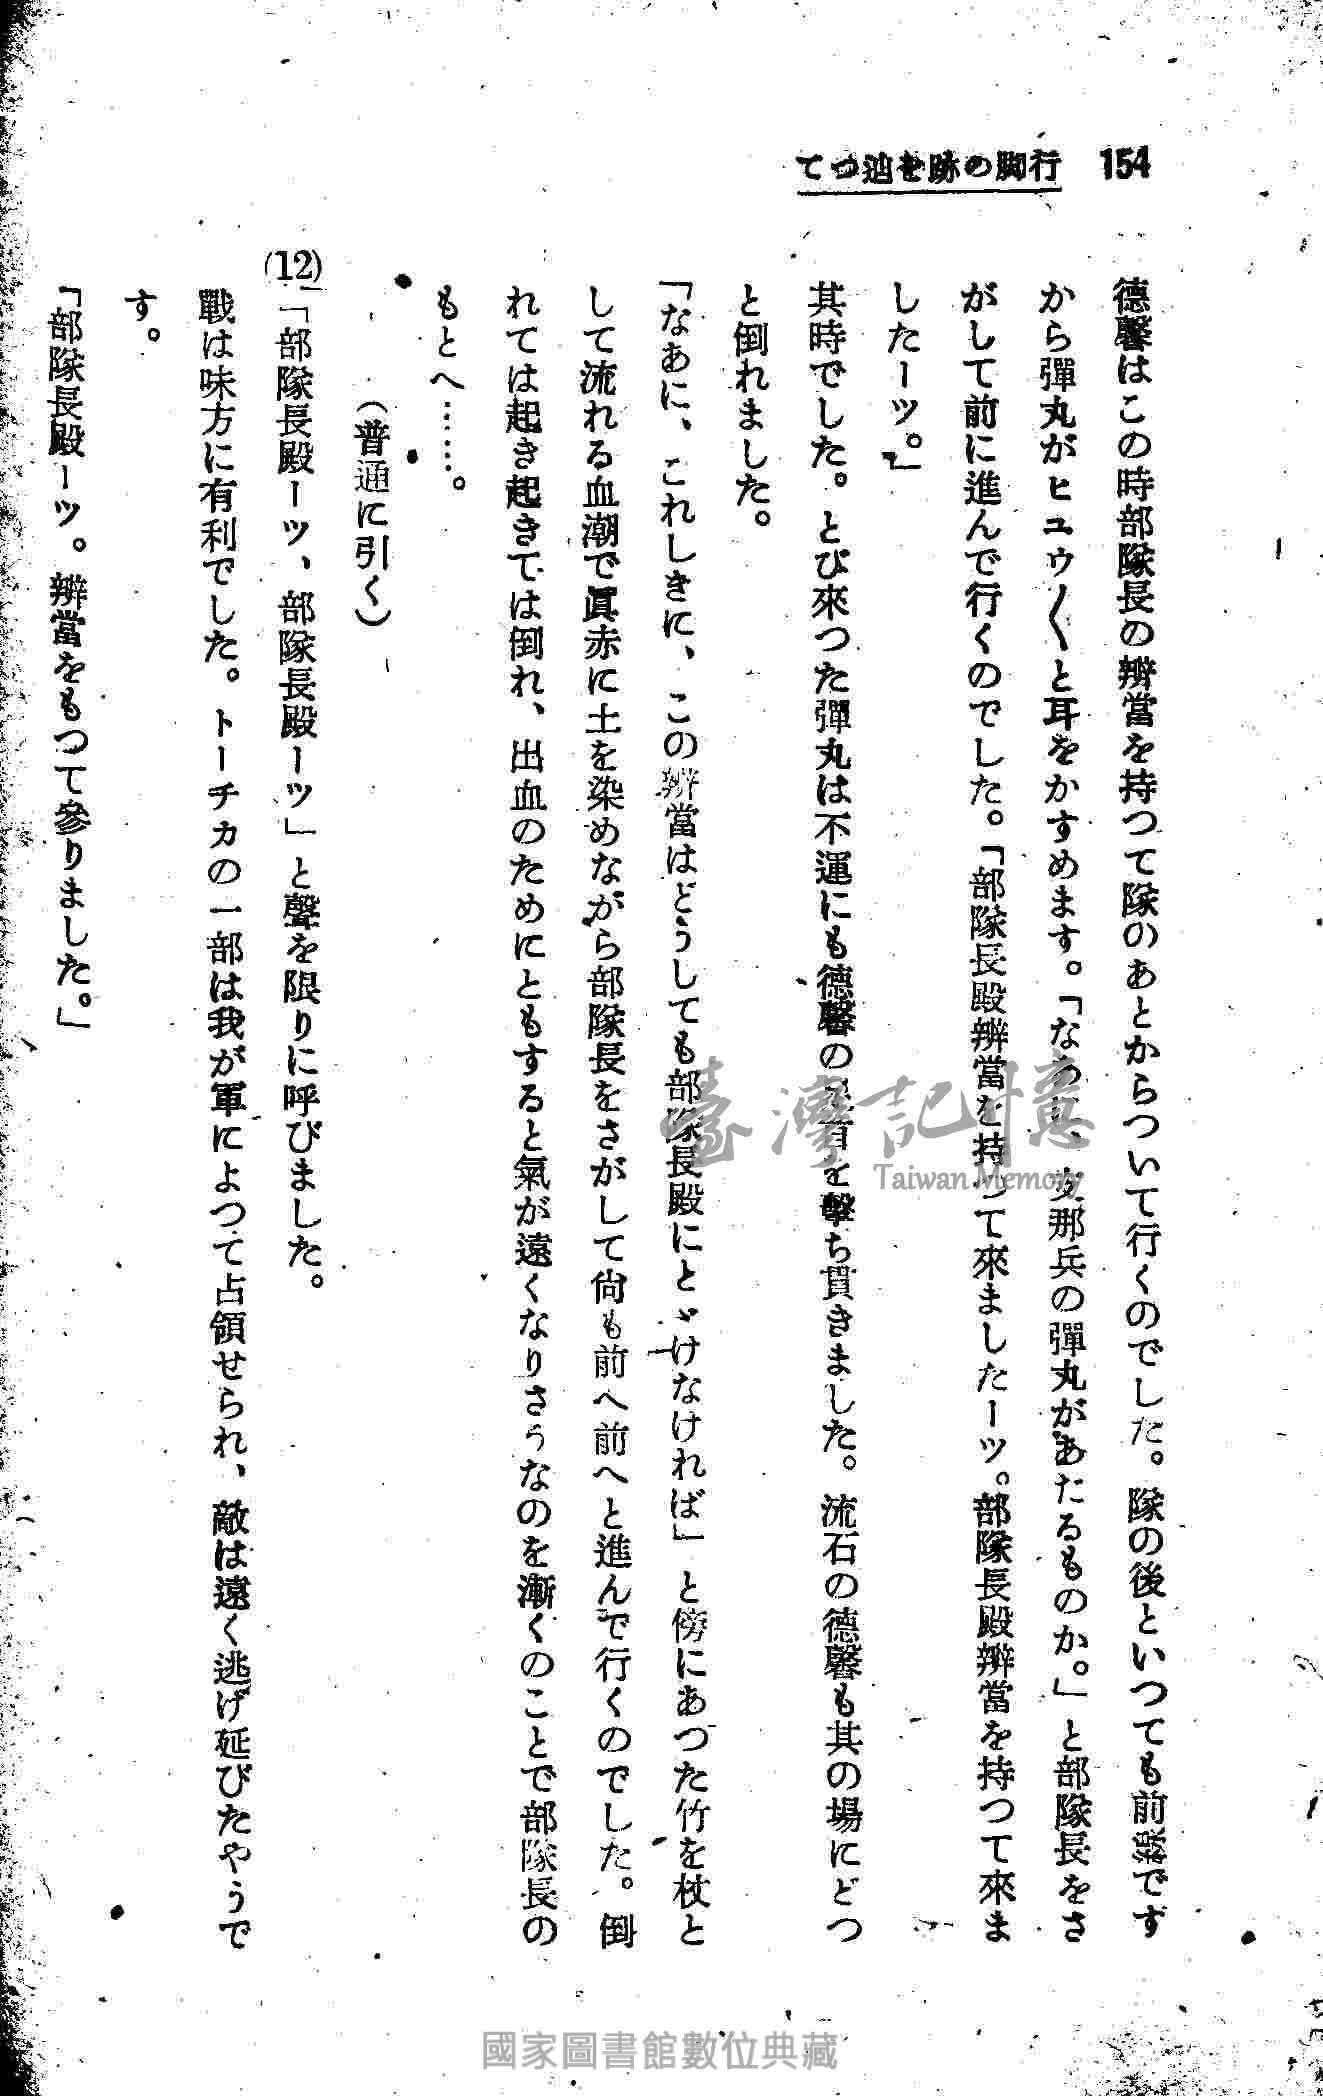 154
行脚の跡を辿つて
德馨はこの時部隊長の辨當を持つて隊のあとからついて行くのでした。隊の後といつても前線です
から彈丸がヒユウ〳〵と耳をかすめます。「なあに、支那兵の彈丸があたるものか。」と部隊長をさ
がして前に進んで行くのでした。「部隊長殿辨當を持つて來ましたーツ。部隊長殿辨當を持つて來ま
したーツ。」
其時でした。とび來つた彈丸は不運にも德馨の を擊ち貫きました。流石の德馨も其の場にどつ
と倒れました。
「なあに、これしきに、この辨當はどうしても部隊長殿にとゞけなければ」と傍にあつた竹を杖と
して流れる血潮で眞赤に土を染めながら部隊長をさがして尙も前へ前へと進んで行くのでした。倒
れては起き起きては倒れ、出血のためにともすると氣が遠くなりさうなのを漸くのことで部隊長の
もとへ……。
(普通に引く)
(12)「部隊長殿ーツ、部隊長殿ーツ」と聲を限りに呼びました。
戰は味方に有利でした。トーチカの一部は我が軍によつて占領せられ、敵は遠く逃げ延びたやうで
す。
「部隊長殿ーツ。辨當をもつて參りました。」
臺灣記憶
Taiwan Memory
國家圖書館數位典藏